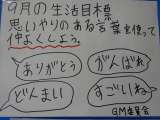 9月の生活目標
思いやりのある言葉を使って
仲よくしよう。
ありがとう
がんばれ
どんまい
すごいね
GM委員会